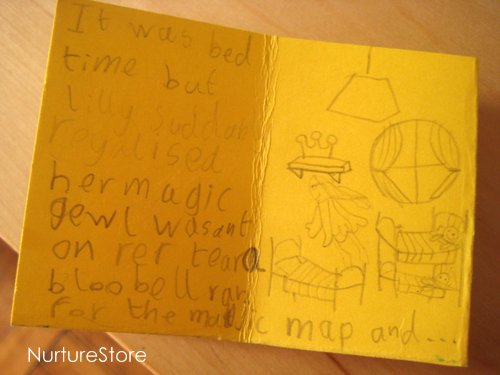 It was bed
time but
lilly suddably
regalised
her magic
gewl wasant
on rer teara
bloobell ran
for the magic map and...
NurtureStore